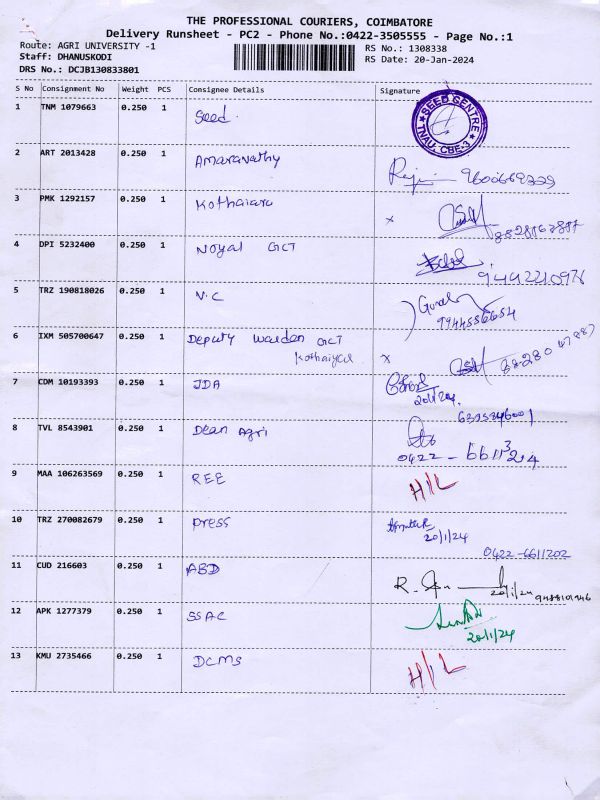 THE PROFESSIONAL COURIERS, COIMBATORE
Delivery Runsheet - PC2 - Phone No.:0422-3505555 - Page No.:1
Route: AGRI UNIVERSITY -1
RS No.: 1308338
Staff: DHANUSKODI
RS Date: 20-Jan-2024
DRS No.: DCJB130833801
S No Consignment No Weight PCS Consignee Details Signature
1 TNM 1079663 0.250 1 Seed
SEED CENTRE
TNAU, CBE-3
2 ART 2013428 0.250 1 Amaravathy
9600669229
3 PMK 1292157 0.250 1 Kothaiaru x
4 DPI 5232400 0.250 1 Noyal GCT
9442210976
5 TRZ 190818026 0.250 1 V.C
6 IXM 505700647 0.250 1 Deputy warden GCT
x
7 CDM 10193393 0.250 1 JDA
20/1/24.
8 TVL 8543901 0.250 1 Dean Agri
0422 -
9 MAA 106263569 0.250 1 REE H/L
10 TRZ 270082679 0.250 1 press
20/1/24
0422-6611202
11 CUD 216603 0.250 1 ABD
20/1/24
12 APK 1277379 0.250 1 SSAC
20/1/24
13 KMU 2735466 0.250 1 DCMS H/L